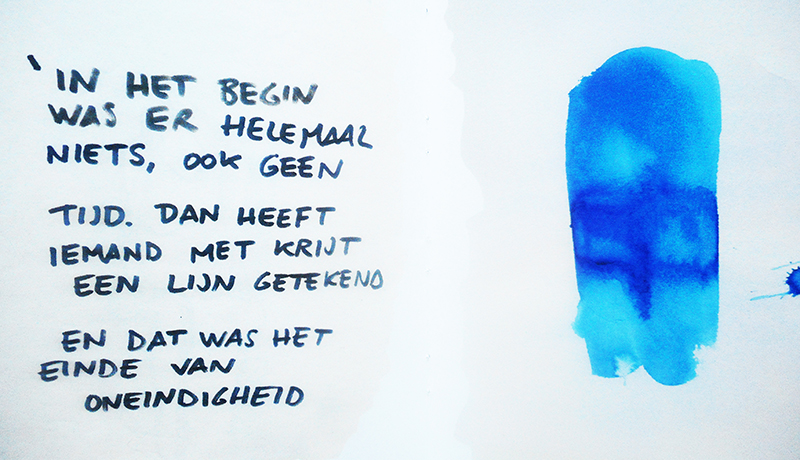 'IN HET BEGIN
WAS ER HELEMAAL
NIETS, OOK GEEN
TIJD. DAN HEEFT
IEMAND MET KRIJT
EEN LIJN GETEKEND
EN DAT WAS HET
EINDE VAN
ONEINDIGHEID